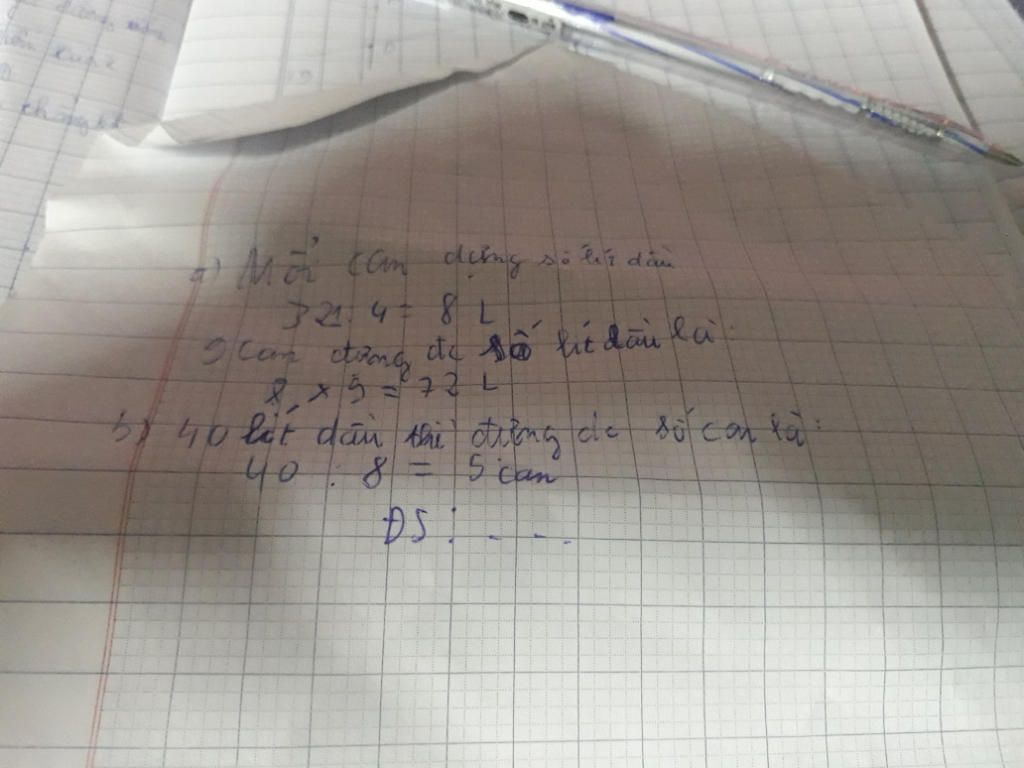 a) Mỗi can đựng số lít dầu
32 : 4 = 8 L
9 can đựng đc số lít dầu là:
8 x 9 = 72 L
b) 40 lít dầu thì đựng đc số can là:
40 : 8 = 5 can
ĐS : . . .